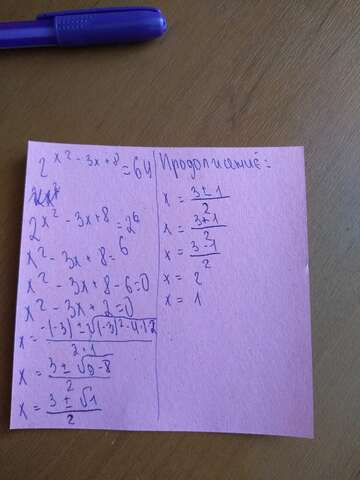 2^x² - 3x + 8 = 64
2^x² - 3x + 8 = 2^6
x² - 3x + 8 = 6
x² - 3x + 8 - 6 = 0
x² - 3x + 2 = 0
x = -(-3) ± √(-3)² - 4·1·2 / 2·1
x = 3 ± √9 - 8 / 2
x = 3 ± √1 / 2
Продолжение:
x = 3 ± 1 / 2
x = 3 + 1 / 2
x = 3 - 1 / 2
x = 2
x = 1